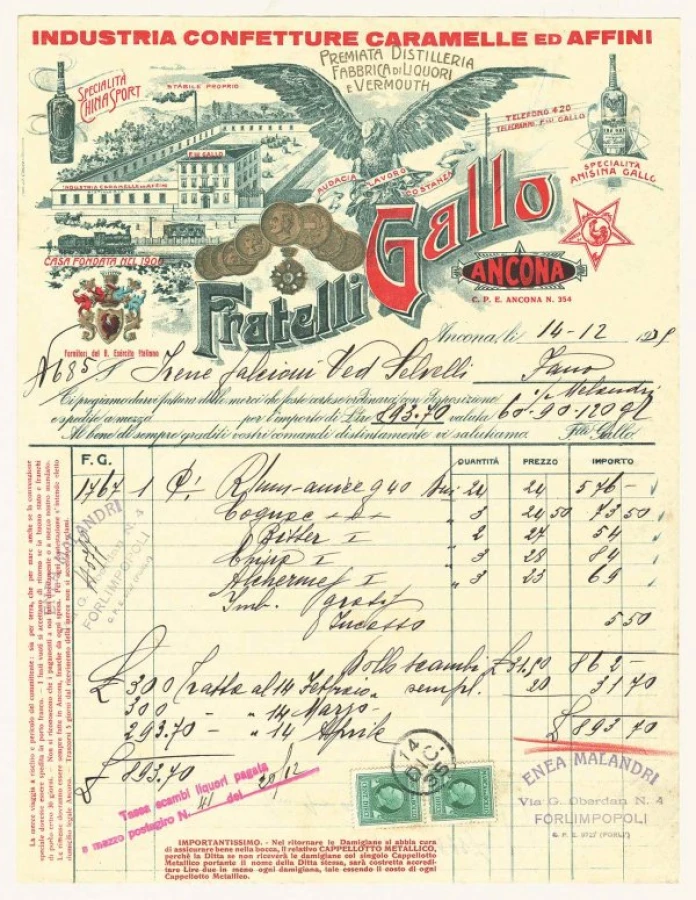 INDUSTRIA CONFETTURE CARAMELLE ED AFFINI
PREMIATA DISTILLERIA
FABBRICA DI LIQUORI
E VERMOUTH
SPECIALITÀ
CHINA SPORT
STABILE PROPRIO
F.LLI GALLO
INDUSTRIA CARAMELLE ED AFFINI
TELEFONO 420
TELEGRAMMI: F.LLI GALLO
SPECIALITÀ
ANISINA GALLO
AUDACIA LAVORO COSTANZA
CASA FONDATA NEL 1900
Fratelli Gallo
ANCONA
C. P. E. ANCONA N. 354
Fornitori del R. Esercito Italiano
Ancona, li 14-12 193
N 685 Irene Falcioni Ved Selvelli Fano
Vi preghiamo dare fattura delle merci che foste cortese ordinarci con disposizione Melandri
e spedite a mezzo per l'importo di Lire 893.70 valuta 60-90-120 gg
Al bene di sempre graditi vostri comandi distintamente vi salutiamo. F.lli Gallo
F. G. QUANTITÀ PREZZO IMPORTO
1767 1 Rhum 40 24 24 576 -
Cognac 3 24 50 73 50
Bitter I 2 27 54
China I 3 28 84
Alchermes I 3 23 69
Imb. gratis
Incasso 5 50
Bollo scambi £ 31,50 862 -
£ 300 Tratta al 14 Febbraio 20 31 70
300 - " 14 Marzo
293.70 - " 14 Aprile £ 893 70
£ 893.70
Tassa scambi liquori pagata
a mezzo postagiro N. 41 del 12
14 DIC. 35
ENEA MALANDRI
Via G. Oberdan N. 4
FORLIMPOPOLI
C. P. E. (FORLÌ)
MALANDRI
G. N. 4
FORLIMPOPOLI
IMPORTANTISSIMO. - Nel ritornare le Damigiane si abbia cura
di assicurare bene nella bocca, il relativo CAPPELLOTTO METALLICO,
perchè la Ditta se non riceverà le damigiane col singolo Cappellotto
Metallico portante il nome della Ditta stessa, sarà costretta accredi-
tare Lire due in meno ogni damigiana, tale essendo il costo di ogni
Cappellotto Metallico.
La merce viaggia a rischio e pericolo del committente - sia per terra, che per mare anche se la convenzione
speciale dovesse essere spedita in porto franco. - I fusti vuoti si accettano di ritorno se in buono stato e franchi
di porto entro 30 giorni. Non si riconoscono che i pagamenti a noi fatti direttamente o a mezzo nostro mandato.
Le rimesse dovranno essere sempre fatte in Ancona, franche da ogni spesa. Per ogni contestazione s'intende eletto
domicilio legale Ancona. Trascorsi 8 giorni dal ricevimento della merce non si accettano reclami.